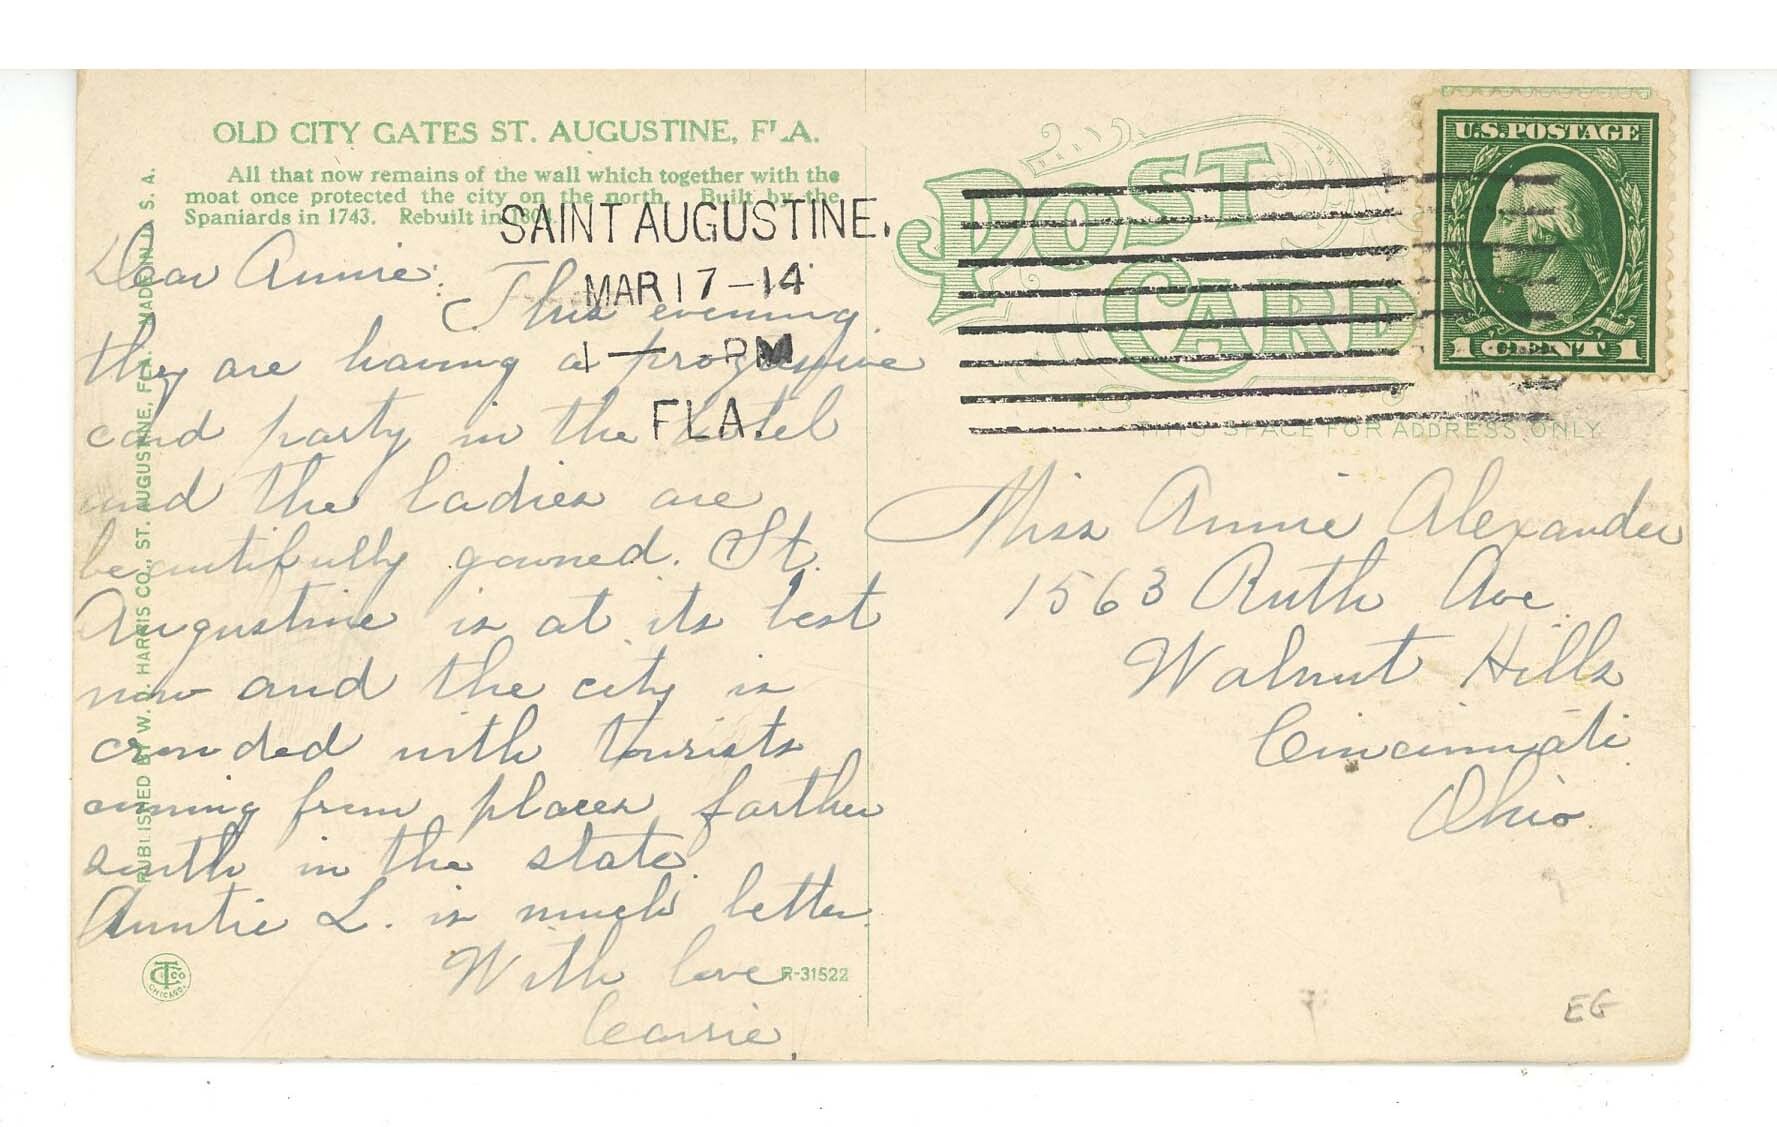 OLD CITY GATES ST. AUGUSTINE, FLA.
All that now remains of the wall which together with the
moat once protected the city on the north. Built by the
Spaniards in 1743. Rebuilt in
SAINT AUGUSTINE.
MAR 17 - 14
1 - PM
FLA.
Dear Annie:
This evening
they are having a progressive
card party in the hotel
and the ladies are
beautifully gowned. St.
Augustine is at its best
now and the city is
crowded with tourists
coming from places farther
south in the state.
Auntie L. is much better.
With love
Carrie
PUBLISHED BY W. J. HARRIS CO., ST. AUGUSTINE, FLA. MADE IN U. S. A.
CTCo
CHICAGO.
R-31522
POST CARD
U.S. POSTAGE
1 CENT 1
THIS SPACE FOR ADDRESS ONLY
Miss Annie Alexander
1563 Ruth Ave.
Walnut Hills
Cincinnati
Ohio.
EG